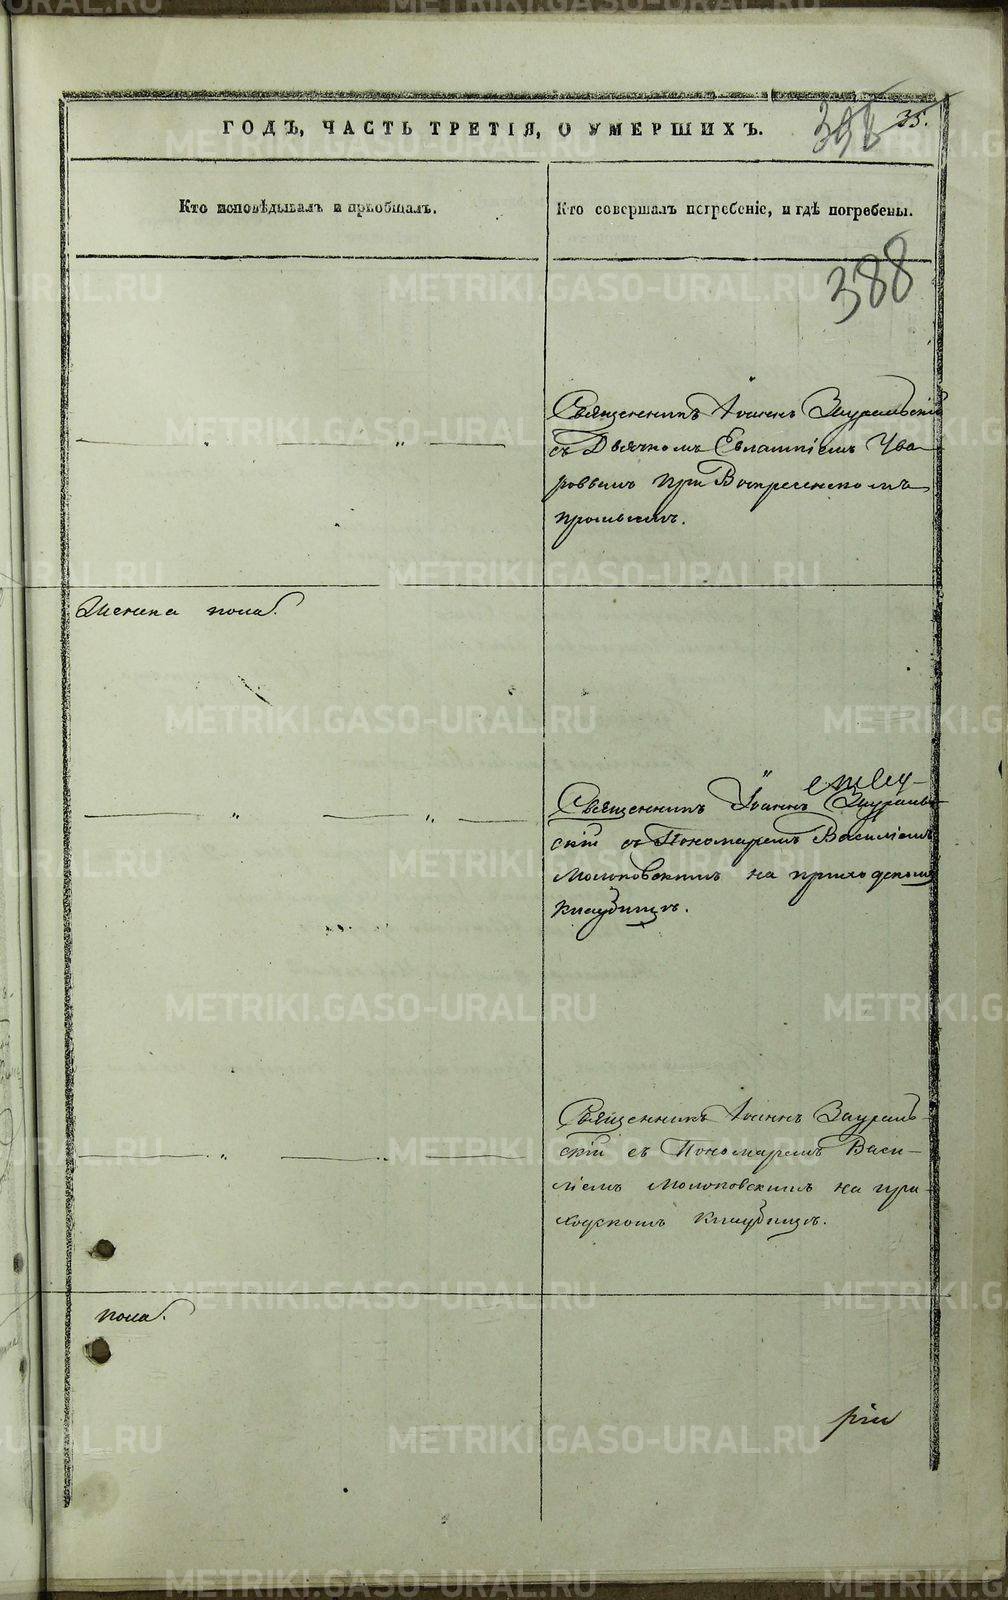 ГОДЪ, ЧАСТЬ ТРЕТІЯ, О УМЕРШИХЪ.
35.
Кто исповѣдывалъ и пріобщалъ.
Кто совершалъ погребеніе, и гдѣ погребены.
388
Священникъ Іоаннъ Зауральскій
съ Дьячкомъ Евлампіемъ Ува-
ровымъ при Воскресенскомъ
промыслѣ.
Женска пола.
Священникъ Іоаннъ Заураль-
скій съ Пономаремъ Василіемъ
Молоковскимъ на приходскомъ
кладбищѣ.
Священникъ Іоаннъ Заураль-
скій съ Пономаремъ Васи-
ліемъ Молоковскимъ на при-
ходскомъ кладбищѣ.
пола.
METRIKI.GASO-URAL.RU